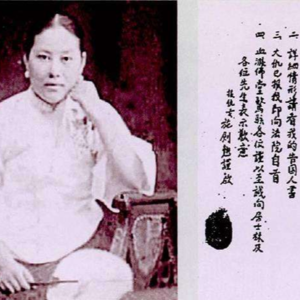 二 詳細情形請看我的告國人書
三 大仇已報我即向法院自首
四 血濺佛堂驚駭各位謹以至誠向居士林及
各位先生表示歉意
報仇女施劍翹謹啟